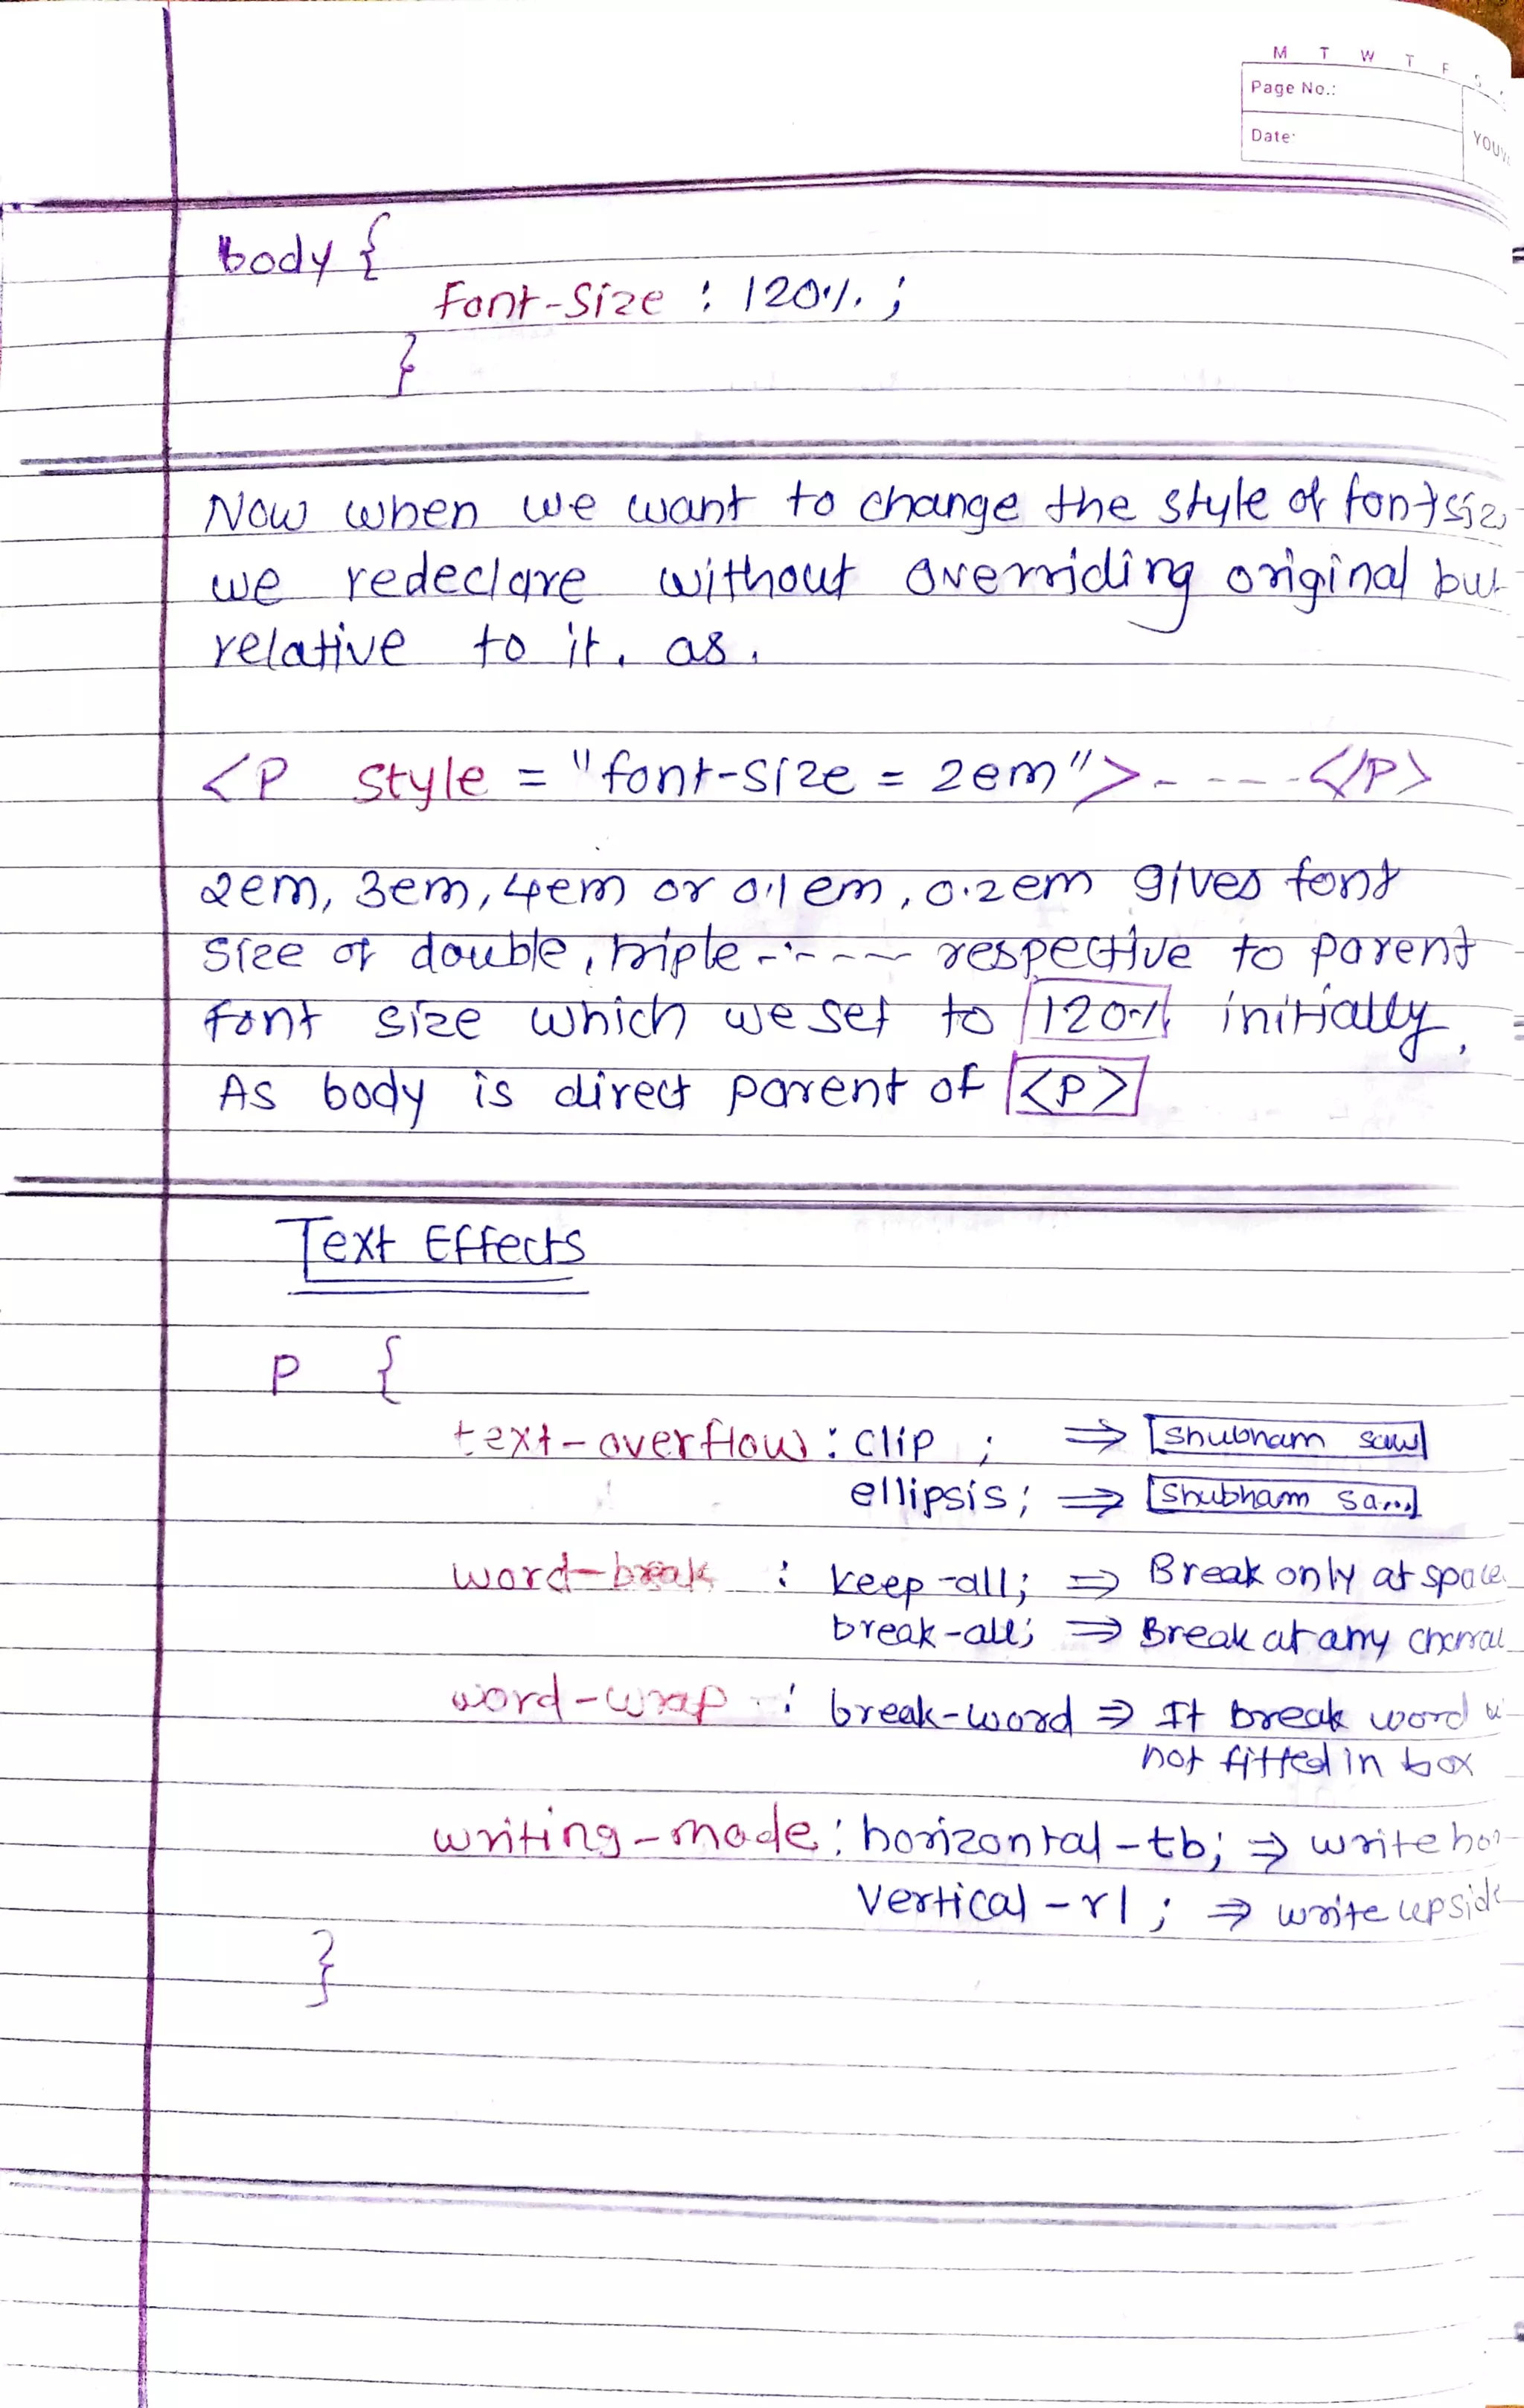 M T W T F S
Page No.:
Date:
body {
font-size : 120%;
}
Now when we want to change the style of font size
we redeclare without overriding original but
relative to it. as.
<P style = "font-size = 2em">- - - - -</P>
2em, 3em, 4em or 0.1em, 0.2em gives font
size of double, triple ----- respective to parent
font size which we set to 120% initially.
As body is direct parent of <P>
Text Effects
P {
text-overflow : clip ; ⇒ Shubham saw
ellipsis; ⇒ Shubham sa...
word-break : keep-all; ⇒ Break only at space
break-all; ⇒ Break at any
word-wrap : break-word ⇒ It break word
not fitted in box
writing-mode : horizontal-tb; ⇒ write hor
vertical-rl ; ⇒ write upside
}